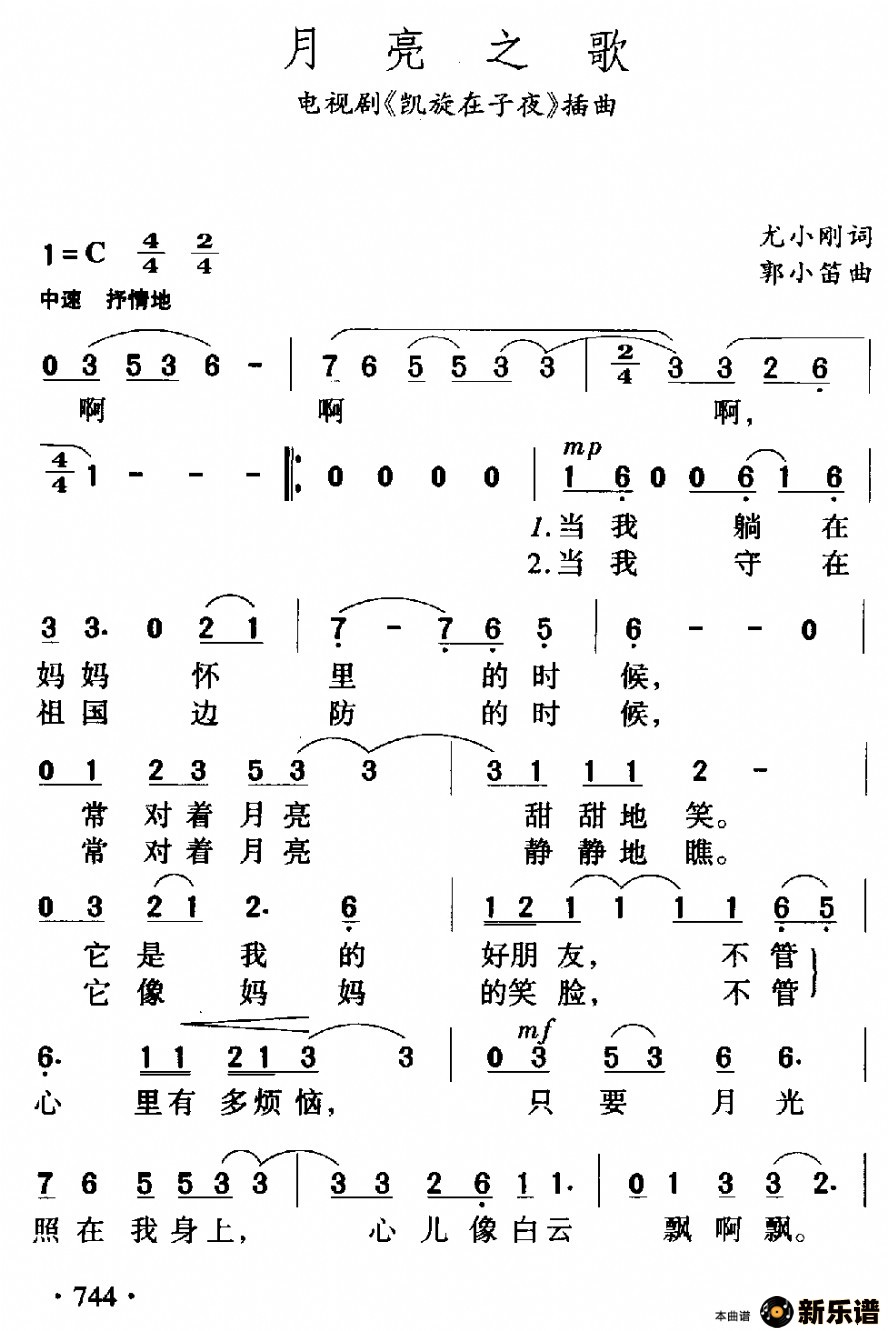 月亮之歌
电视剧《凯旋在子夜》插曲
尤小刚词
1=C 4/4 2/4
郭小笛曲
中速 抒情地
0 3 5 3 6 - | 7 6 5 5 3 3 | 2/4 3 3 2 6
啊 啊 啊，
4/4 1 - - - ‖: 0 0 0 0 | mp 1 6 0 0 6 1 6
1.当我 躺 在
2.当我 守 在
3 3. 0 2 1 | 7 - 7 6 5 | 6 - - 0
妈妈 怀 里 的时 候，
祖国 边 防 的时 候，
0 1 2 3 5 3 3 | 3 1 1 1 2 -
常 对着月亮 甜 甜地 笑。
常 对着月亮 静 静地 瞧。
0 3 2 1 2. 6 | 1 2 1 1 1 1 6 5
它 是 我 的 好朋 友， 不 管
它 像 妈 妈 的笑 脸， 不 管
6. 1 1 2 1 3 3 | mf 0 3 5 3 6 6.
心 里有多烦恼， 只 要 月 光
7 6 5 5 3 3 | 3 3 2 6 1 1. | 0 1 3 3 2.
照在我身上， 心儿像白云 飘啊飘。
·744·
本曲谱 新乐谱